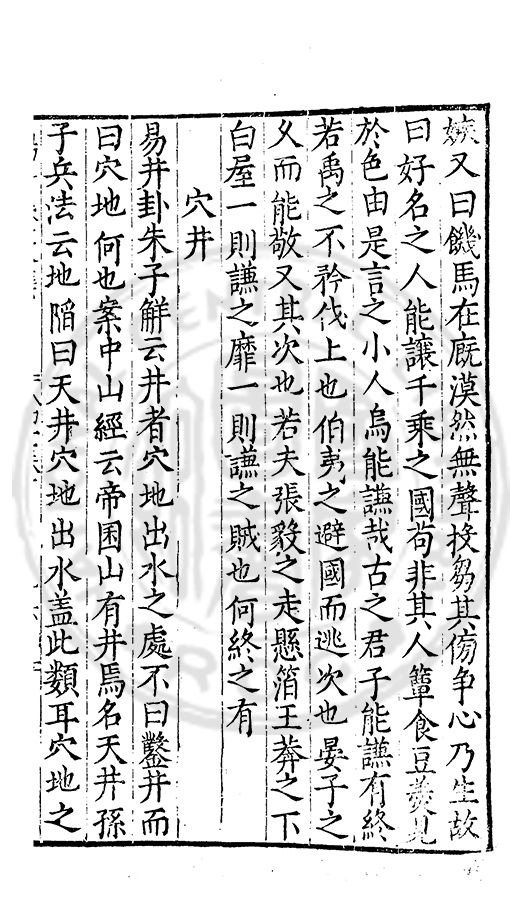 嫉又曰饑馬在厩漠然無聲投芻其傍争心乃生故
曰好名之人能讓千乘之國苟非其人簞食豆羹見
於色由是言之小人烏能謙哉古之君子能謙有終
若禹之不矜伐上也伯夷之避國而逃次也晏子之
久而能敬又其次也若夫張毅之走懸箔王莽之下
白屋一則謙之靡一則謙之賊也何終之有
穴井
易井卦朱子解云井者穴地出水之處不曰鑿井而
曰穴地何也案中山經云帝囷山有井焉名天井孫
子兵法云地陷曰天井穴地出水盖此類耳穴地之